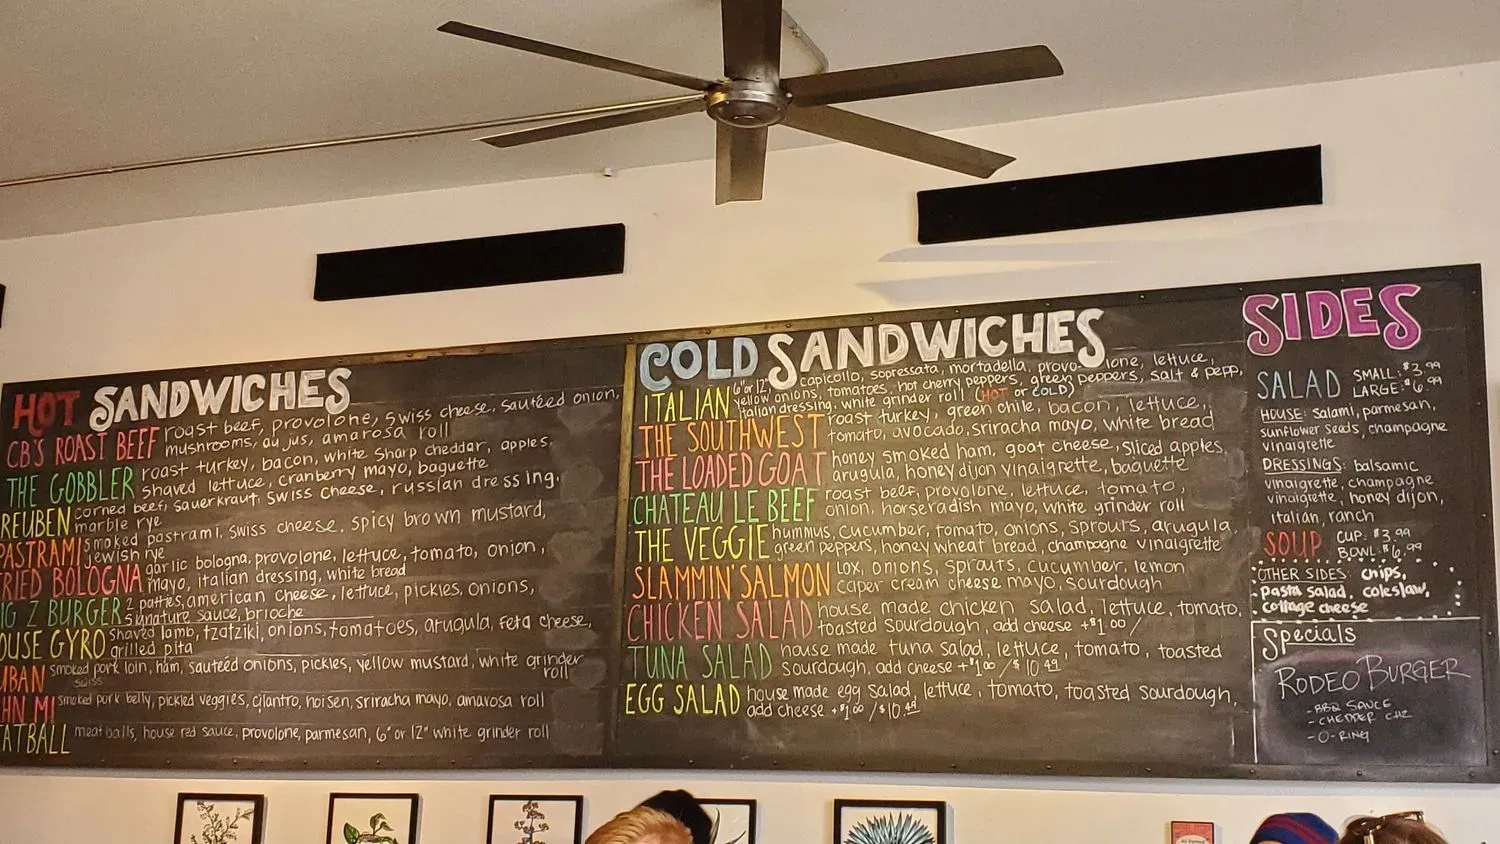 HOT SANDWICHES
CB'S ROAST BEEF roast beef, provolone, swiss cheese, sautéed onion,
mushrooms, au jus, amarosa roll
THE GOBBLER roast turkey, bacon, white sharp cheddar, apples,
shaved lettuce, cranberry mayo, baguette
REUBEN corned beef, sauerkraut, swiss cheese, russian dressing,
marble rye
PASTRAMI smoked pastrami, swiss cheese, spicy brown mustard,
jewish rye
RIED BOLOGNA garlic bologna, provolone, lettuce, tomato, onion,
mayo, italian dressing, white bread
IG Z BURGER 2 patties, american cheese, lettuce, pickles, onions,
signature sauce, brioche
OUSE GYRO shaved lamb, tzatziki, onions, tomatoes, arugula, feta cheese,
grilled pita
UBAN smoked pork loin, ham, sautéed onions, pickles, yellow mustard, white grinder
swiss roll
HN MI smoked pork belly, pickled veggies, cilantro, hoisen, sriracha mayo, amarosa roll
ATBALL meatballs, house red sauce, provolone, parmesan, 6" or 12" white grinder roll
COLD SANDWICHES
ITALIAN 6" or 12" capicollo, sopressata, mortadella, provolone, lettuce,
yellow onions, tomatoes, hot cherry peppers, green peppers, salt & pepp,
italian dressing, white grinder roll (HOT or COLD)
THE SOUTHWEST roast turkey, green chile, bacon, lettuce,
tomato, avocado, sriracha mayo, white bread
THE LOADED GOAT honey smoked ham, goat cheese, sliced apples,
arugula, honey dijon vinaigrette, baguette
CHATEAU LE BEEF roast beef, provolone, lettuce, tomato,
onion, horseradish mayo, white grinder roll
THE VEGGIE hummus, cucumber, tomato, onions, sprouts, arugula,
green peppers, honey wheat bread, champagne vinaigrette
SLAMMIN' SALMON lox, onions, sprouts, cucumber, lemon
caper cream cheese mayo, sourdough
CHICKEN SALAD house made chicken salad, lettuce, tomato,
toasted sourdough, add cheese +$1.00 /
TUNA SALAD house made tuna salad, lettuce, tomato, toasted
sourdough, add cheese +$1.00 /$10.49
EGG SALAD house made egg salad, lettuce, tomato, toasted sourdough,
add cheese +$1.00 /$10.49
SIDES
SALAD SMALL: $3.99
LARGE: $6.99
HOUSE: salami, parmesan,
sunflower seeds, champagne
vinaigrette
DRESSINGS: balsamic
vinaigrette, champagne
vinaigrette, honey dijon,
italian, ranch
SOUP CUP: $3.99
BOWL: $6.99
OTHER SIDES: chips,
pasta salad, coleslaw,
cottage cheese
Specials
RODEO BURGER
-BBQ SAUCE
-CHEDDER CHZ
-O-RING